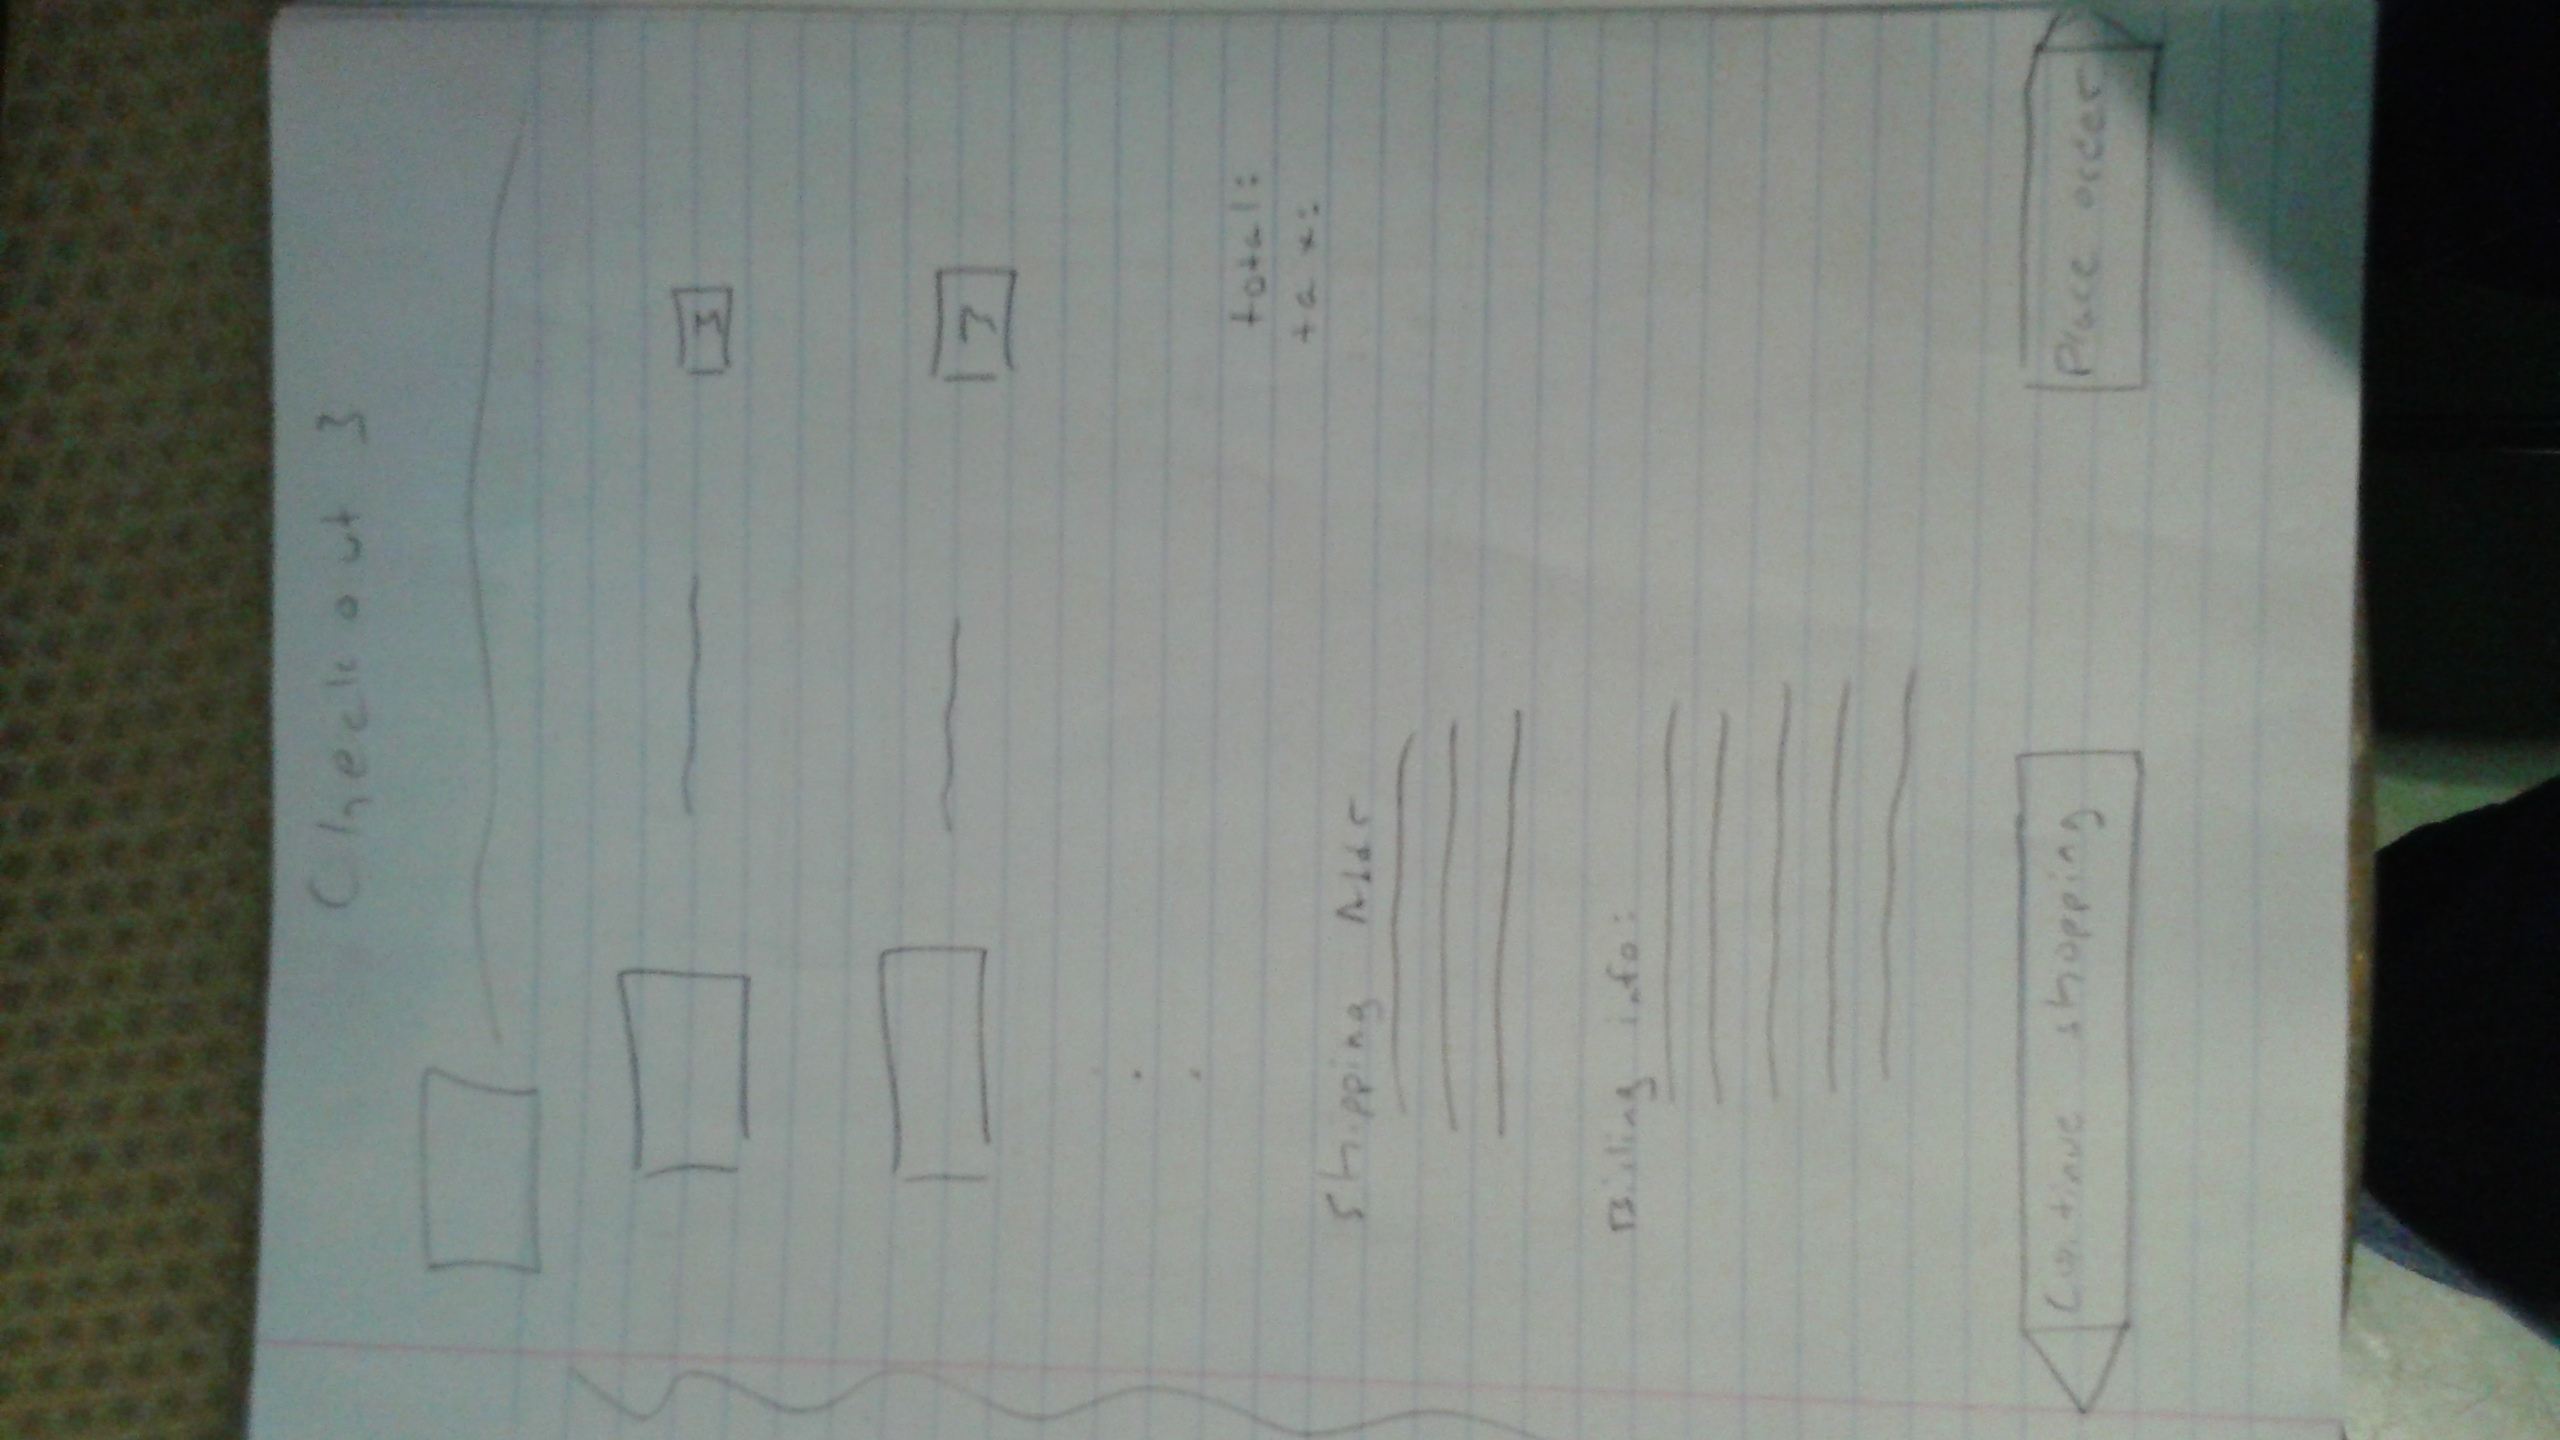 Checkout 3
3
7
total:
tax:
Shipping Addr
Billing info:
Continue shopping
Place order